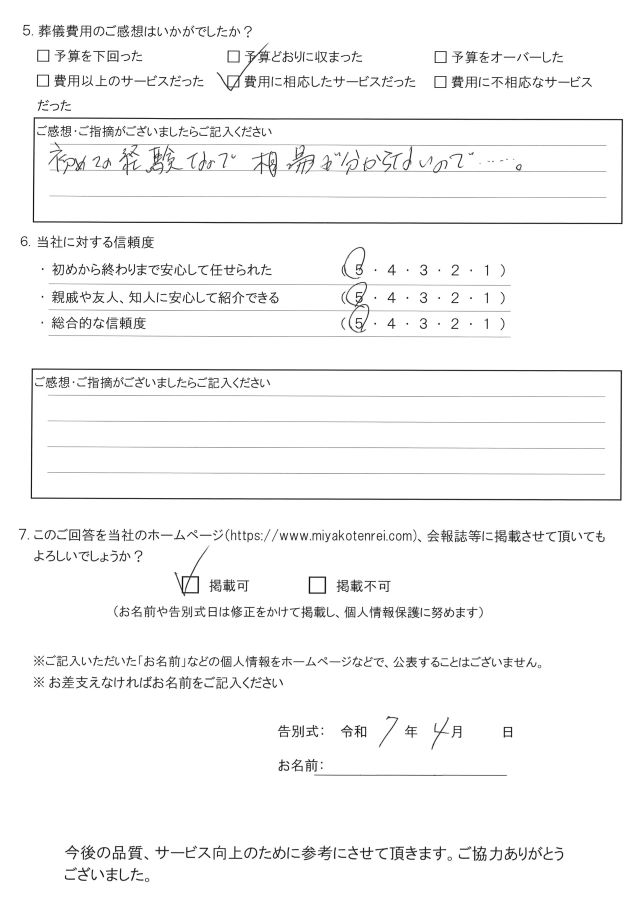 5. 葬儀費用のご感想はいかがでしたか？
□ 予算を下回った □ 予算どおりに収まった □ 予算をオーバーした
□ 費用以上のサービスだった □ 費用に相応したサービスだった □ 費用に不相応なサービス
だった
ご感想・ご指摘がございましたらご記入ください
初めての経験なので 相場が分からないので……。
6. 当社に対する信頼度
・ 初めから終わりまで安心して任せられた （ 5 ・ 4 ・ 3 ・ 2 ・ 1 ）
・ 親戚や友人、知人に安心して紹介できる （ 5 ・ 4 ・ 3 ・ 2 ・ 1 ）
・ 総合的な信頼度 （ 5 ・ 4 ・ 3 ・ 2 ・ 1 ）
ご感想・ご指摘がございましたらご記入ください
7. このご回答を当社のホームページ（https://www.miyakotenrei.com）、会報誌等に掲載させて頂いても
よろしいでしょうか？
□ 掲載可 □ 掲載不可
（お名前や告別式日は修正をかけて掲載し、個人情報保護に努めます）
※ご記入いただいた「お名前」などの個人情報をホームページなどで、公表することはございません。
※ お差支えなければお名前をご記入ください
告別式： 令和 7 年 4 月 日
お名前：
今後の品質、サービス向上のために参考にさせて頂きます。ご協力ありがとう
ございました。